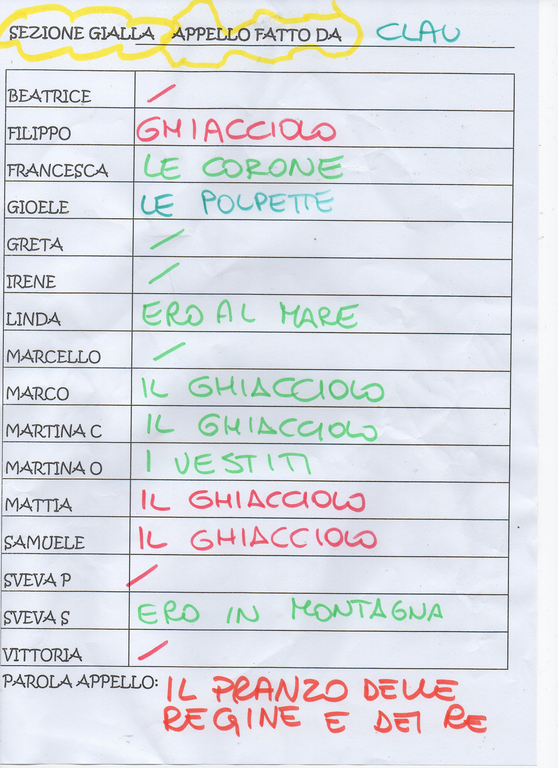 SEZIONE GIALLA APPELLO FATTO DA CLAU
BEATRICE /
FILIPPO GHIACCIOLO
FRANCESCA LE CORONE
GIOELE LE POLPETTE
GRETA /
IRENE /
LINDA ERO AL MARE
MARCELLO /
MARCO IL GHIACCIOLO
MARTINA C IL GHIACCIOLO
MARTINA O I VESTITI
MATTIA IL GHIACCIOLO
SAMUELE IL GHIACCIOLO
SVEVA P /
SVEVA S ERO IN MONTAGNA
VITTORIA /
PAROLA APPELLO: IL PRANZO DELLE
REGINE E DEI RE